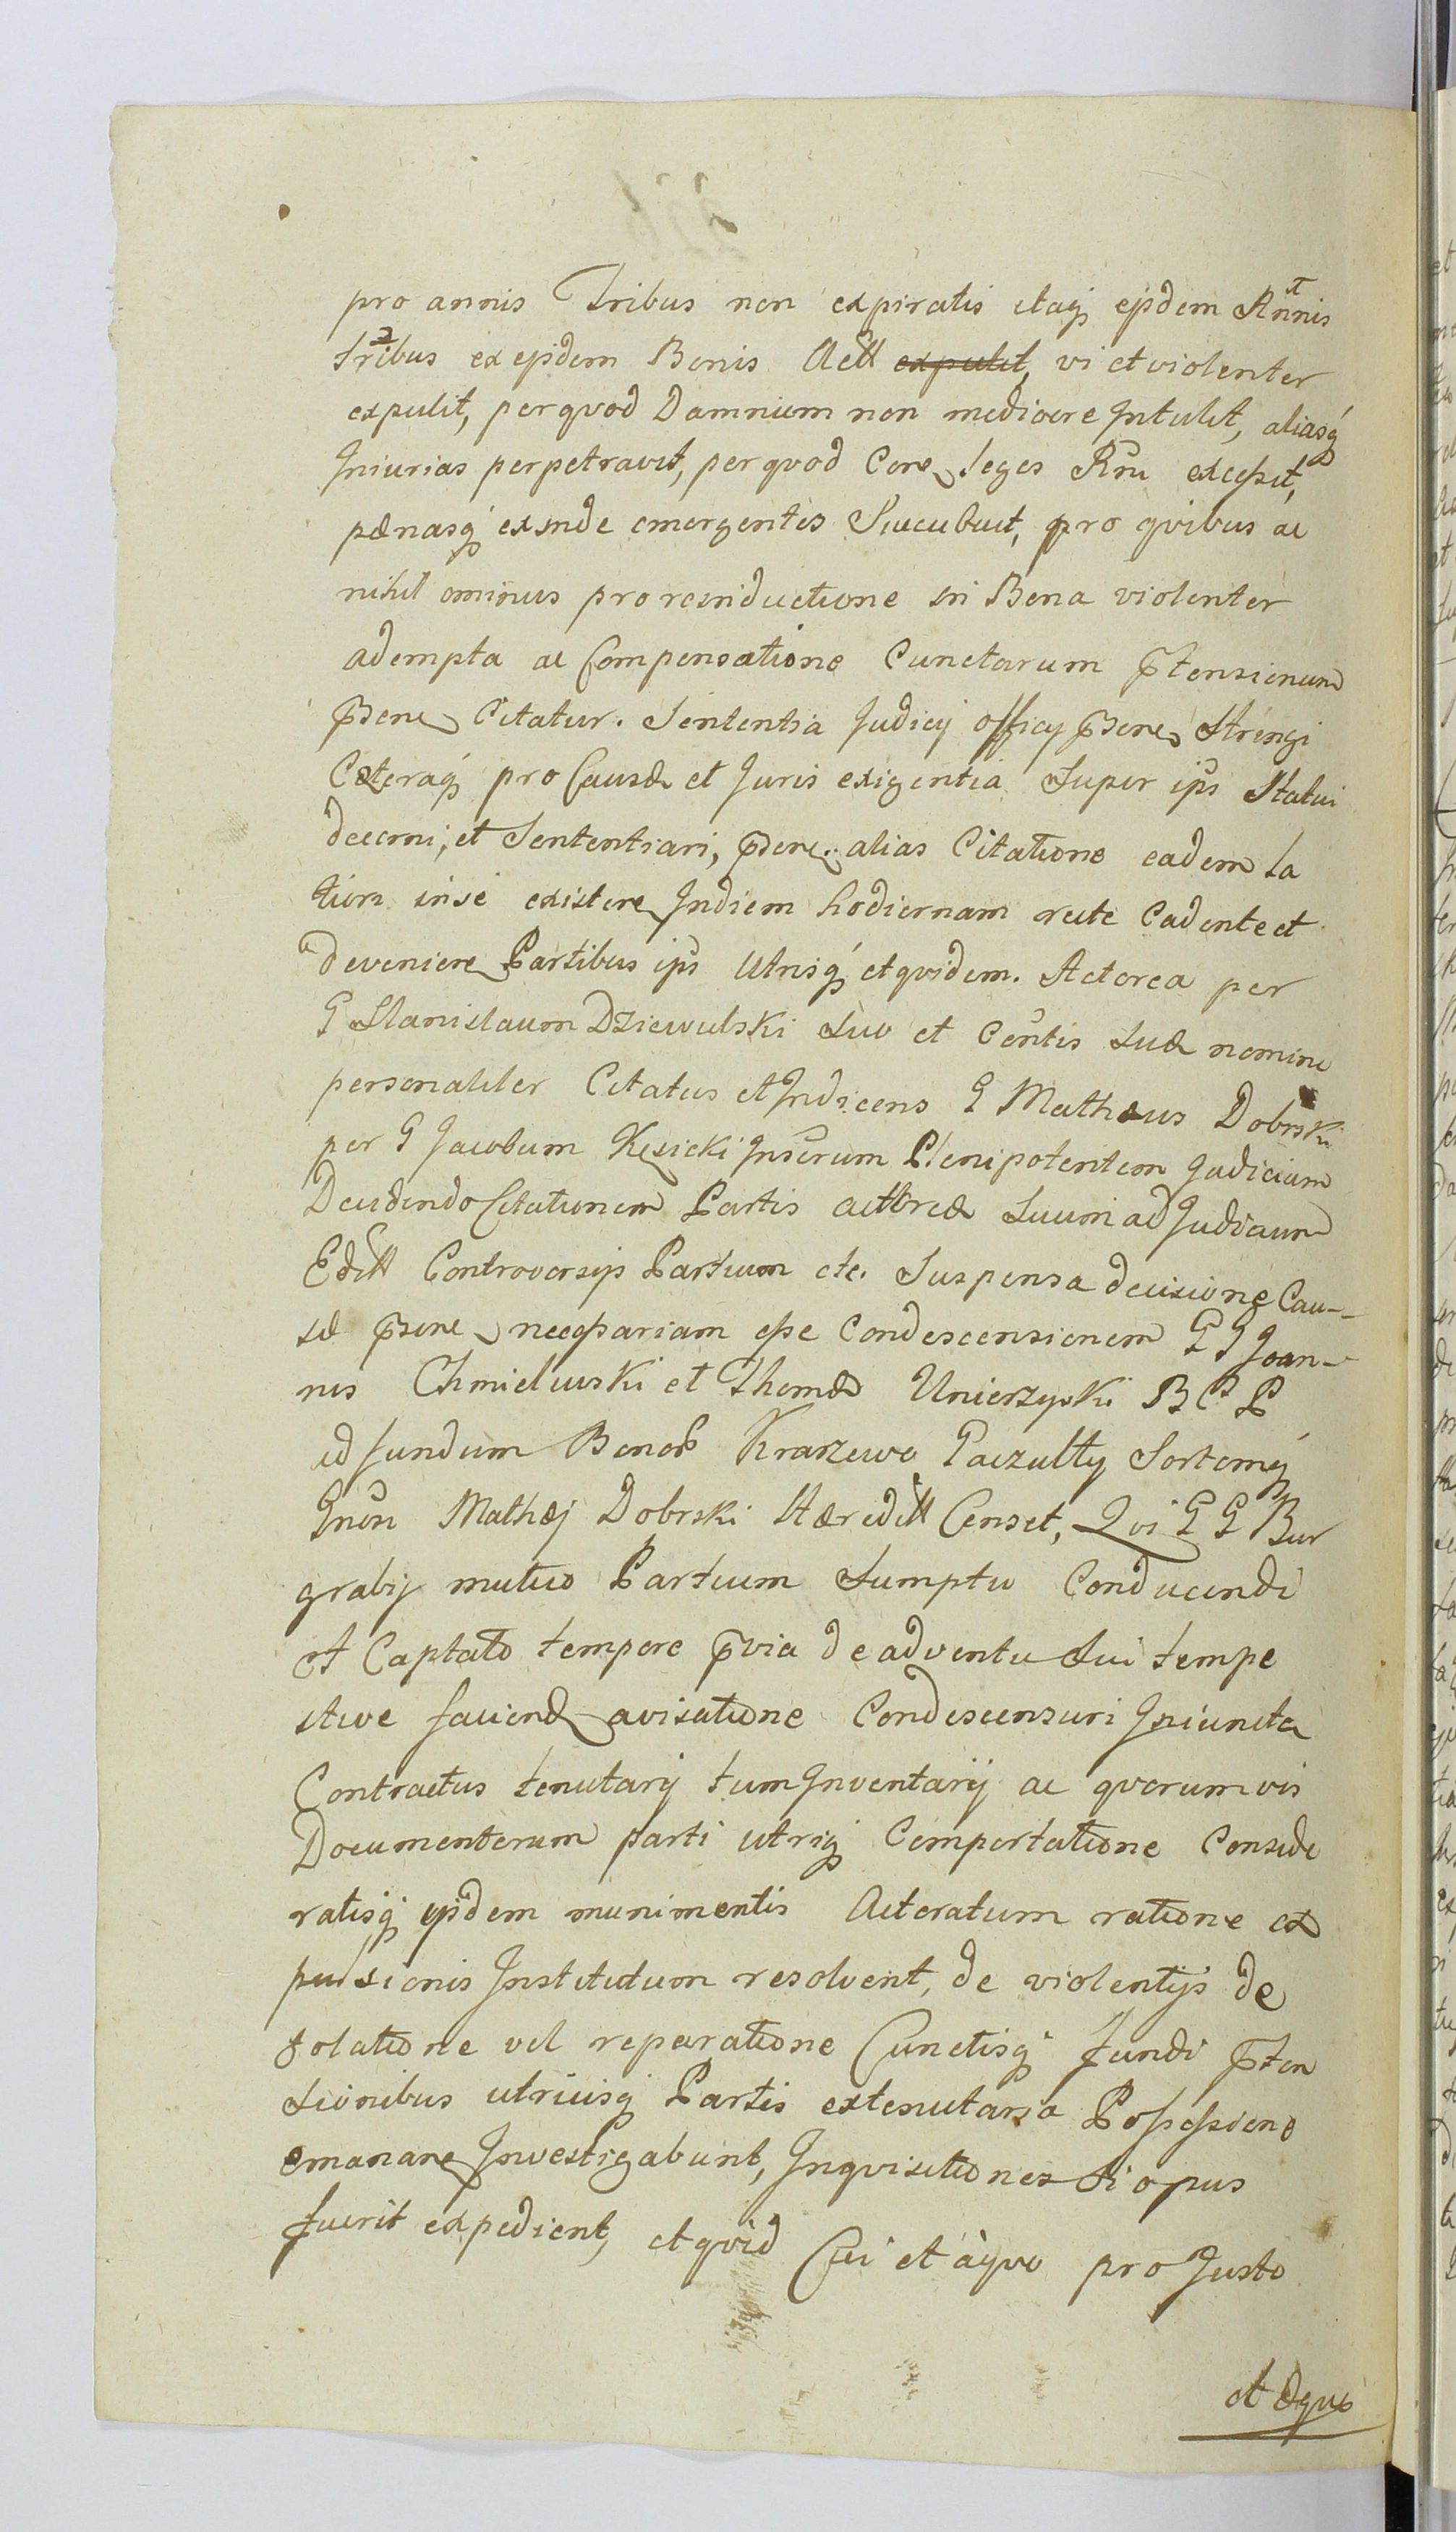 pro annis Tribus non expiratis itaq ejsdem Annis
Tribus ex ejsdem Bonis Actt expulit, vi et violenter
expulit, per qvod Damnium non mediocre Intulit, aliasq
Iniurias perpetravit, per qvod Core Leges Rni excessit,
pænasq exinde emergentes Succubuit, pro qvibus ac
nihil ominus pro reinductione in Bona violenter
adempta ac Compensatione Cunctarum Ptensionum
Psene Citatur. Sententia Judicij officij Psene Stringi
Cæteraq pro Causæ et Juris exigentia Super ips Statui
decerni, et Sententiari, Psene alias Citatione eadem La
tium in se existere Indiem hodiernam recte Cadente et
deveniere Partibus ips Utrisq et qvidem. Actorea per
G Stanislaum Dziewulski Suo et Contis Suæ nomine
personaliter Citatus et Indicens G Mathæus Dobrski
per G Jacobum Kęsicki Inserum Plenipotentem Judicium
Decidendo Citationem Partis acttoreæ Suum ad Judicium
Editt Controversijs Partium etc. Suspensa decisione Cau-
sæ Psene necessariam esse Condescensionem G G Joan-
nis Chmielewski et Thomæ Unierzyski B C P
ad fundum Bonor Krarzewo Gaczulty Sortemq
Gnosi Mathæj Dobrski Hæreditt Censet, Qvi G G Bur
grabij mutuo Partium Sumptu Conducendi
et Captato tempore Pvia de adventu Sui tempe
stive faciend avisatione Condescensuri Iniuncta
Contractus tenutarij tum Inventarij ac qvorumvis
Documentorum parti utriq Comportatione Conside
ratisq ejsdem munimentis Actoratum ratione ex
pulsionis Institutum resolvent, de violentijs de
solatione vel reparatione Cunctisq fundi Pten
sionibus utriusq Partis ex tenutaria Possessione
emanare Investigabunt, Inqvisitiones Si opus
fuerit expedient, et qvid Cui et aqvo pro Justo
et Æqvo